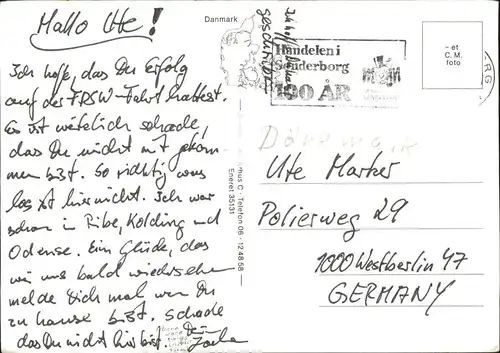 Hallo Ute!
Ich hoffe, das Du Erfolg
auf der FDSW-Fahrt hattest.
Es ist wirklich schade,
das Du nicht mit gekom-
men bist. So richtig was
los ist hier nicht. Ich war
schon in Ribe, Kolding und
Odense. Ein Glück, das
wir uns bald wiedersehen
melde Dich mal wer Du
zu hause bist. Schade
das Du nicht hier bist. Dein
Danmark
geschrieben
Telefon 06 - 12 48 58
Eneret 35131
Handelen i
Sønderborg
190 ÅR
- et
C.M.
foto
ARG
Dänemark
Ute Marker
Polierweg 29
1000 Westberlin 47
GERMANY